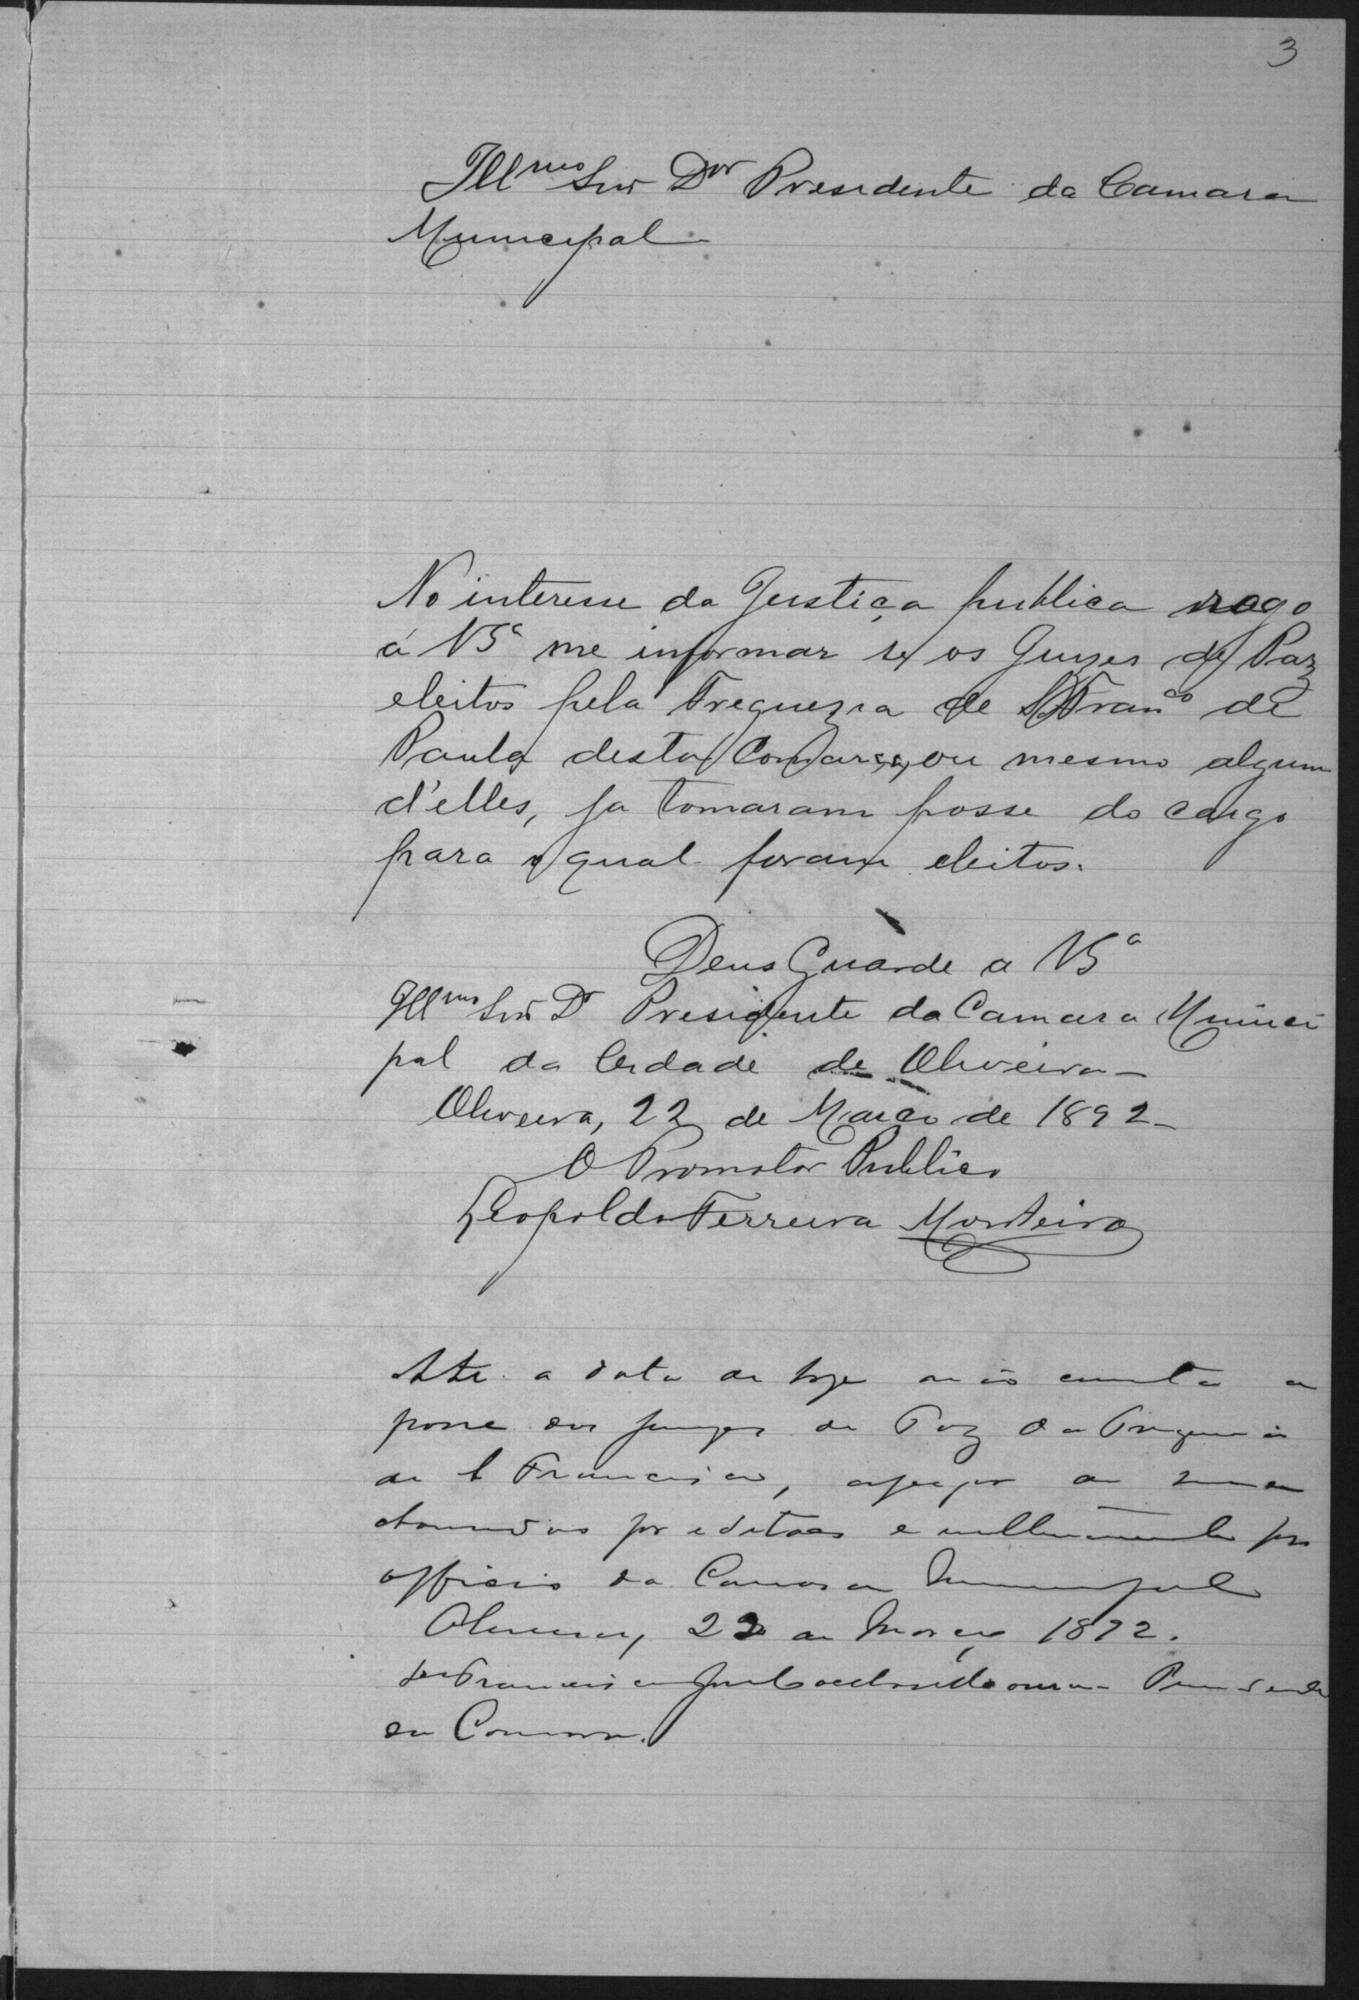 3
Illmo Snr Dor Presidente da Camara
Municipal
No interesse da Justiça publica rogo
á VSa me informar se os Juizes de Paz
eleitos pela Freguezia de S. Franco de
Paula desta Comarca, ou mesmo algum
d'elles, ja tomaram posse do cargo
para o qual foram eleitos.
Deus Guarde a VSa
Illmo Snr Dr Presidente da Camara Munici
pal da Cidade de Oliveira—
Oliveira, 22 de Março de 1892—
O Promotor Publico
Leopoldo Ferreira Monteiro
Até a data de hoje não consta a
posse dos juizes de Paz da Freguezia
de S Francisco, apezar de serem
chamados por editaes e por
officio da Camara Municipal
Oliveira, 22 de Março 1892.
Francisco Presidente
da Camara.